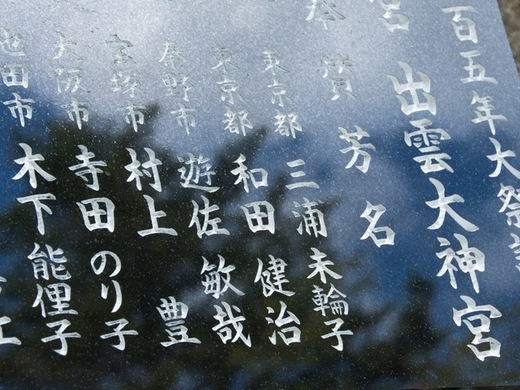 百五年大祭記
宮 出雲大神宮
奉賛芳名
東京都 三浦未輪子
東京都 和田健治
秦野市 遊佐敏哉
宝塚市 村上豊
大阪市 寺田のり子
池田市 木下能俚子